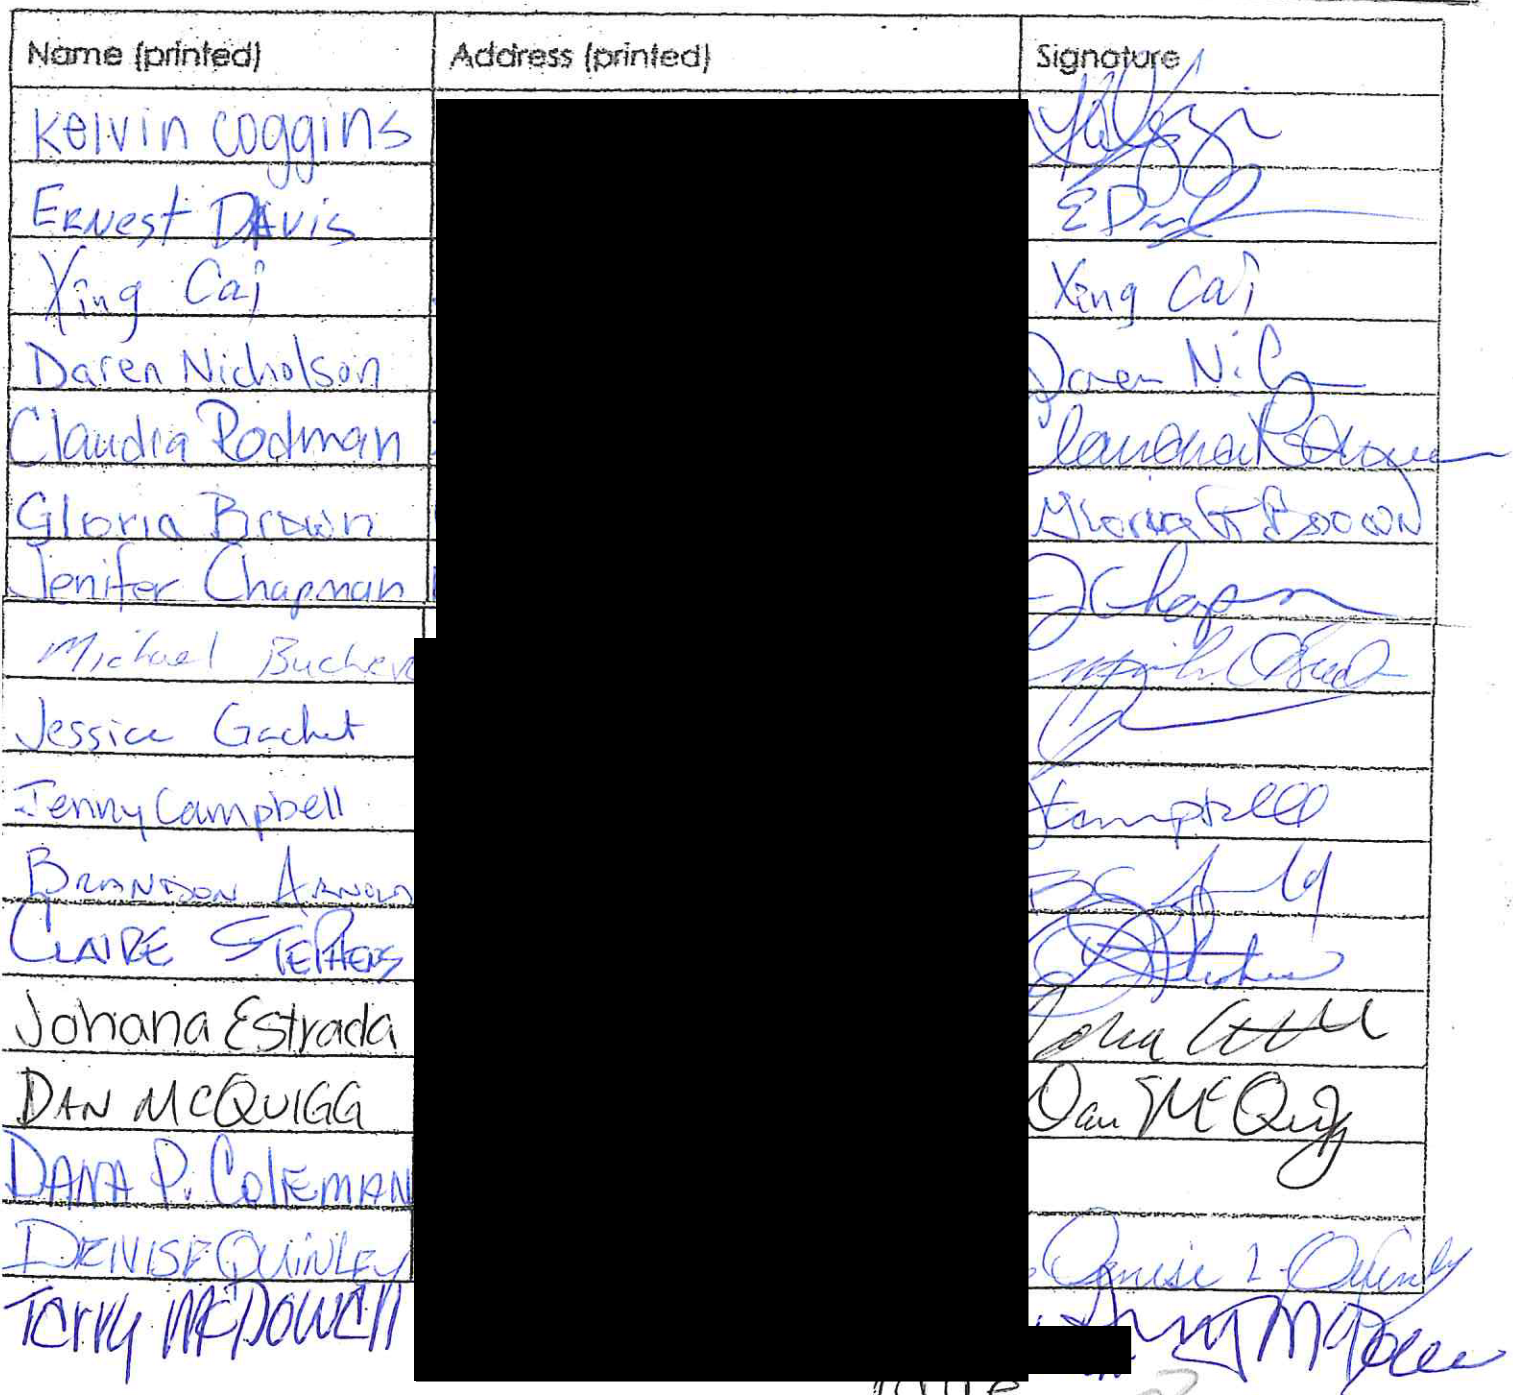 Name (printed) Address (printed) Signature
Kelvin Coggins
Ernest Davis E Dav
Xing Cai Xing Cai
Daren Nicholson Daren
Claudia Rodman Claudia Rodman
Gloria Brown Gloria Brown
Jenifer Chapman J Chapm
Michael Bucher
Jessica Gachet
Jenny Campbell JCampbell
Brandon Arnold
CLAIRE STEPHENS
Johana Estrada
DAN MCQUIGG Dan McQuigg
DANA P. COLEMAN
DENISE QUINLEY Denise L Quinley
Terry McDowell Terry McDowell